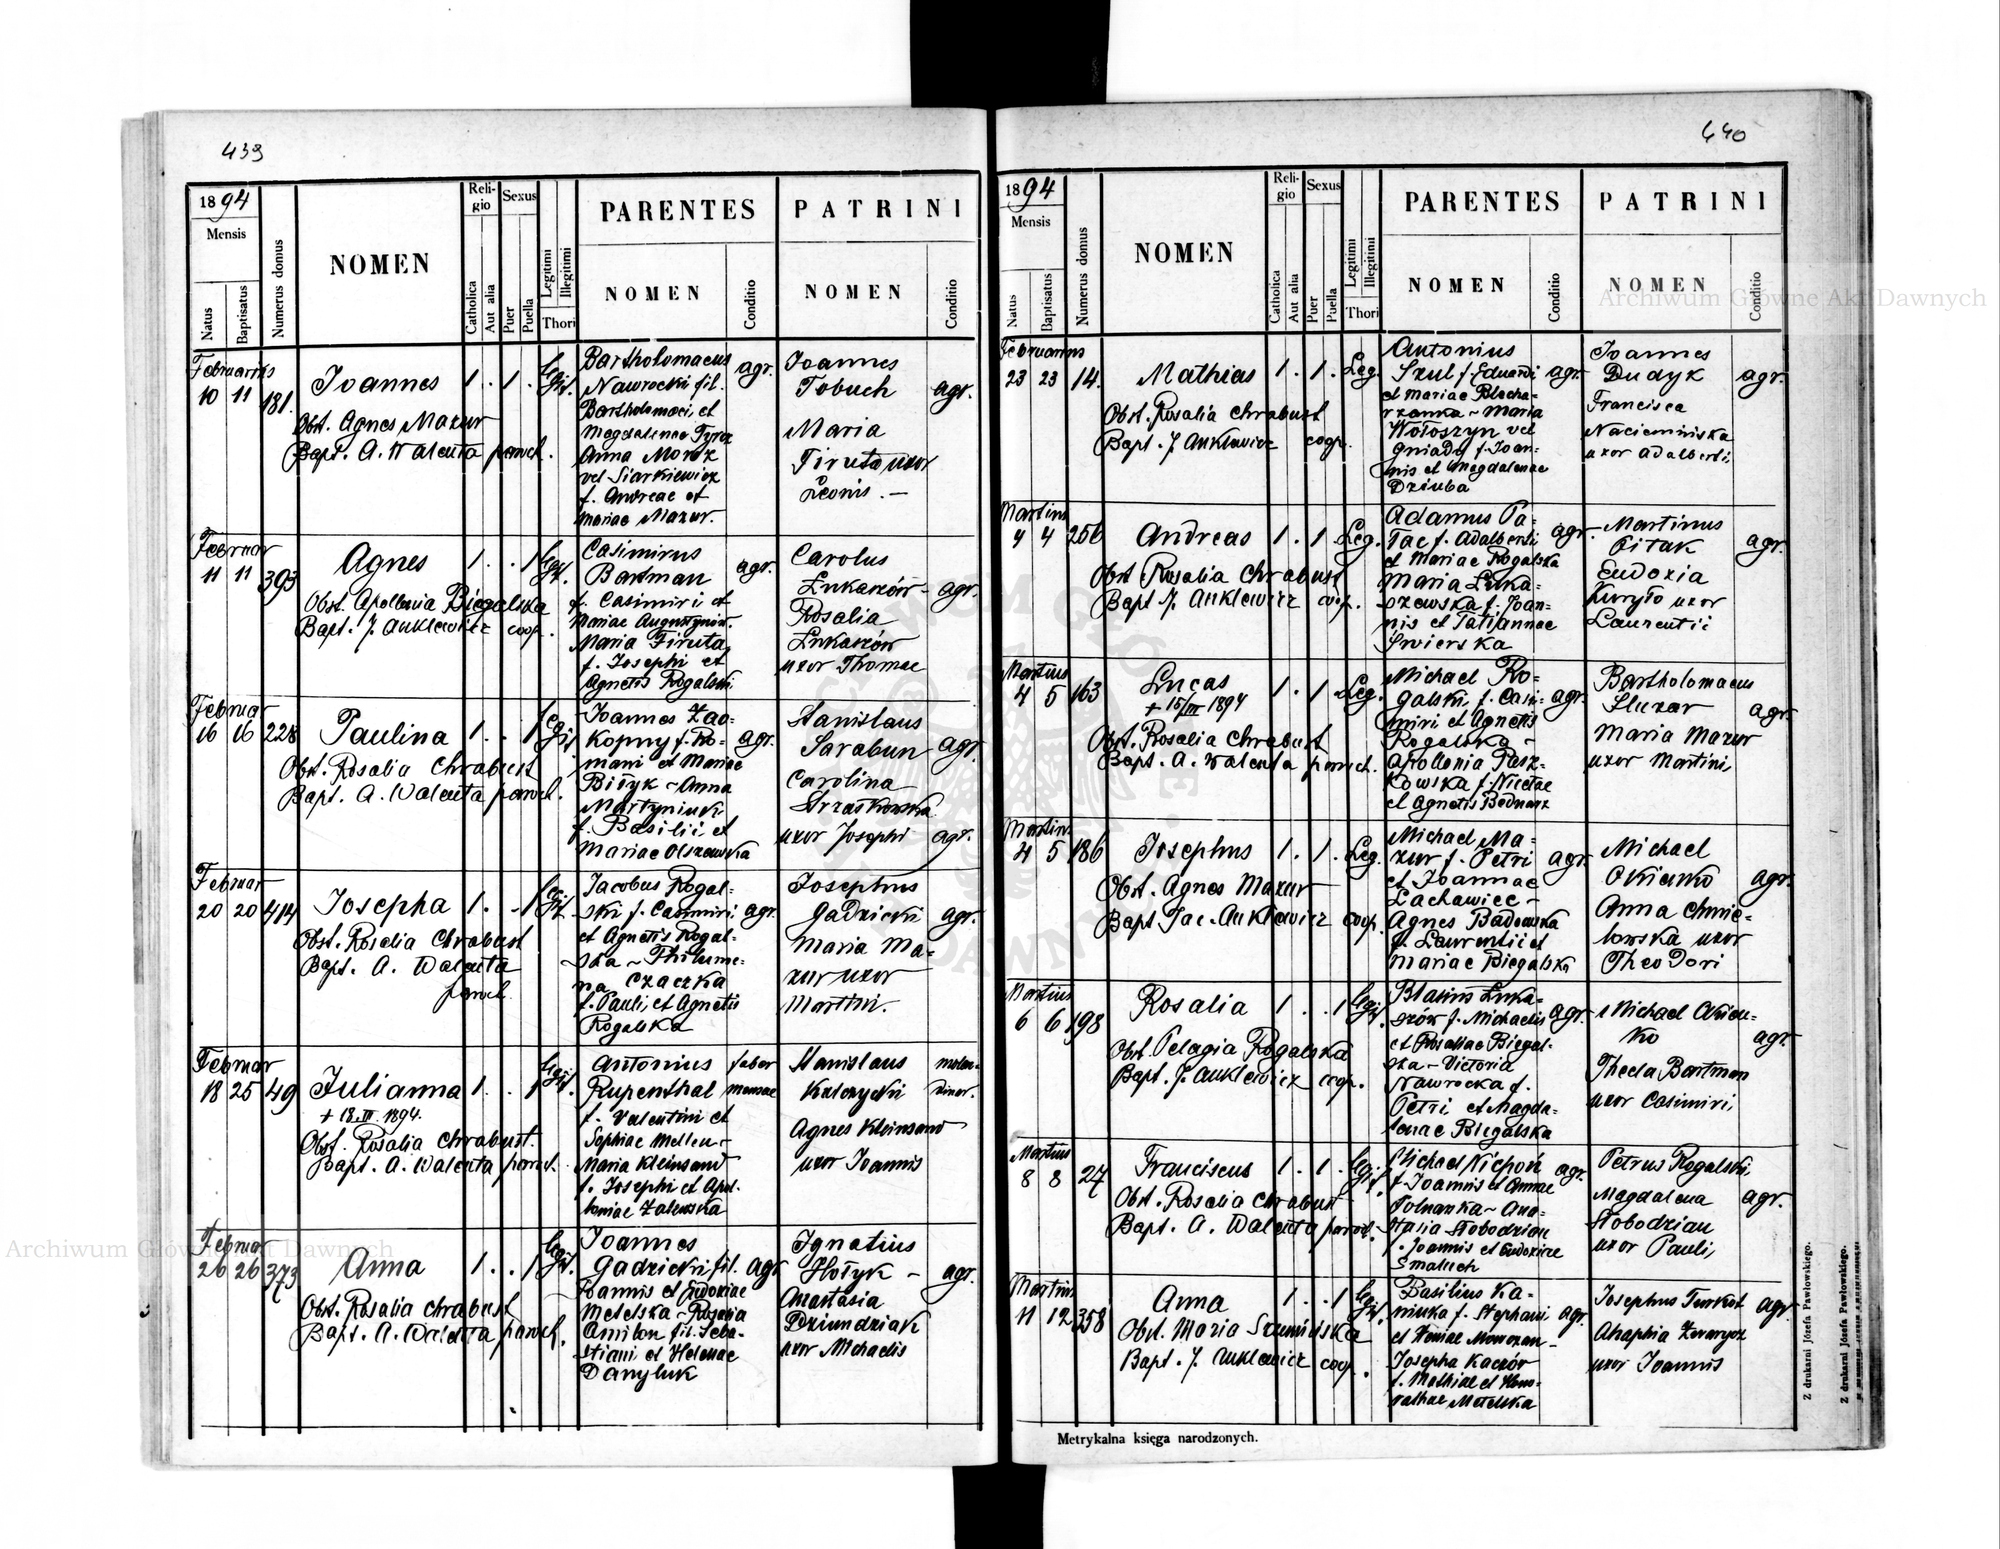 439
1894
Mensis
Natus
Baptisatus
Numerus domus
NOMEN
Religio
Catholica
Aut alia
Sexus
Puer
Puella
Legitimi
Illegitimi
Thori
PARENTES
NOMEN
Conditio
PATRINI
NOMEN
Conditio
Februarius
10 11 181.
Joannes
1 . 1 . Legit.
Obst. Agnes Mazur
Bapt. A. Walenta paroch.
Bartholomaeus
Nawrocki fil.
Bartholomaei et
Magdalenae Tyrcz
Anna Moroz
vel Siarkiewicz
f. Andreae et
Mariae Mazur.
agr.
Joannes
Tobuch agr.
Maria
Firuta uxor
Leonis. —
Februar
11 11 393
Agnes
1 . . 1 legit.
Obst. Apollonia Biegalska
Bapt. J. Auklewicz coop.
Casimirus
Bartman agr.
f. Casimiri et
Mariae Augustynów.
Maria Firuta
f. Josephi et
Agnetis Rogalski
Carolus
Łukaszów agr.
Rosalia
Łukaszów
uxor Thomae
Februar
16 16 228
Paulina
1 . . 1 legit
Obst. Rosalia Chrabust
Bapt. A. Walenta paroch.
Joannes Zao-
kopny f. Ro- agr.
mani et Mariae
Biłyk - Anna
Martyniuk
f. Basilii et
Mariae Olszewska
Stanislaus
Sarabun agr.
Carolina
Strzałkowska
uxor Josephi agr.
Februar
20 20 414
Josepha
1 . . 1 legit
Obst. Rosalia Chrabust
Bapt. A. Walenta
paroch.
Jacobus Rogal-
ski f. Casimiri agr.
et Agnetis Rogal-
ska - Philome-
na Czaczka
f. Pauli et Agnetis
Rogalska
Josephus
Gadzicki agr.
Maria Ma-
zur uxor
Martini.
Februar
18 25 49
Julianna
1 . . 1 legit.
+ 18.III. 1894.
Obst. Rosalia Chrabust.
Bapt. A. Walenta paroch.
Antonius faber
Rupenthal
f. Valentini et
Sophiae Mellen -
Maria Kleinsand
f. Josephi et Apol-
loniae Zalewska
Stanislaus molen-
dinar.
Agnes Kleinsand
uxor Joannis
Februar
26 26 373
Anna
1 . . 1 legit.
Obst. Rosalia Chrabust
Bapt. A. Walenta paroch.
Joannes
Gadzicki fil. agr
Joannis et Eudoxiae
Metelska - Rosalia
Amilon fil. Seba-
stiani et Helenae
Danyluk
Ignatius
Hołyk - agr.
Anastasia
Dziundziak
uxor Michaelis
440
1894
Mensis
Natus
Baptisatus
Numerus domus
NOMEN
Religio
Catholica
Aut alia
Sexus
Puer
Puella
Legitimi
Illegitimi
Thori
PARENTES
NOMEN
Conditio
PATRINI
NOMEN
Conditio
Februarius
23 23 14.
Mathias
1 . 1 . Leg.
Obst. Rosalia Chrabust
Bapt. J. Auklewicz coop.
Antonius
Szul f. Eduardi agr.
et Mariae Blacha-
rzanka - Maria
Wołoszyn vel
Gniady f. Joan-
nis et Magdalenae
Dziuba
Joannes
Dudyk agr.
Francisca
Naciemińska
uxor Adalberti
Martius
4 4 256
Andreas
1 . 1 Leg.
Obst. Rosalia Chrabust
Bapt J. Auklewicz coop.
Adamus Pa-
tac f. Adalberti agr.
et Mariae Rogalska
Maria Łuka-
szewska f. Joan-
nis et Tatiannae
Świerska
Martinus
Pitak agr.
Eudoxia
Kuryło uxor
Laurentii
Martius
4 5 163
Lucas
1 . 1 Leg.
+ 15/III 1894
Obst. Rosalia Chrabust
Bapt. A. Walenta paroch.
Michael Ro-
galski f. Casi- agr.
miri et Agnetis
Rogalska -
Apollonia Pasz-
kowska f. Nicetae
et Agnetis Bednarz
Bartholomaeus
Sluzar agr.
Maria Mazur
uxor Martini
Martius
4 5 186
Josephus
1 . 1 . Leg.
Obst. Agnes Mazur
Bapt Jac. Auklewicz coop.
Michael Ma-
zur f. Petri agr.
et Joannae
Lachawiec -
Agnes Badowska
f. Laurentii et
Mariae Biegalska
Michael
Okienko agr.
Anna Chmie-
lowska uxor
Theodori
Martius
6 6 198
Rosalia
1 . . 1 legit.
Obst. Pelagia Rogalska
Bapt. J. Auklewicz coop.
Blasius Łuka-
szów f. Michaelis agr.
et Rosaliae Biegal-
ska - Victoria
Nawrocka f.
Petri et Magda-
lenae Biegalska
Michael Okien-
ko agr.
Thecla Bartman
uxor Casimiri
Martius
8 8 27
Franciscus
1 . 1 . legit.
Obst. Rosalia Chrabust
Bapt. A. Walenta paroch.
Michael Nicpoń agr.
f. Joannis et Annae
Polnarka - Ana-
stasia Słobodzian
f. Joannis et Eudoxiae
Smaluch
Petrus Rogalski
Magdalena agr.
Słobodzian
uxor Pauli
Martius
11 12 358
Anna
1 . . 1 legit.
Obst. Maria Szumińska
Bapt. J. Auklewicz coop.
Basilius Ka-
minka f. Stephani agr.
Josepha Kaczór
f. Mathiae et Hono-
rathae Metelska
Josephus Turkot agr.
Ahaphia Zwarycz
uxor Joannis
Metrykalna księga narodzonych.
Z drukarni Józefa Pawłowskiego.
Z drukarni Józefa Pawłowskiego.
Archiwum Główne Akt Dawnych
Archiwum Główne Akt Dawnych